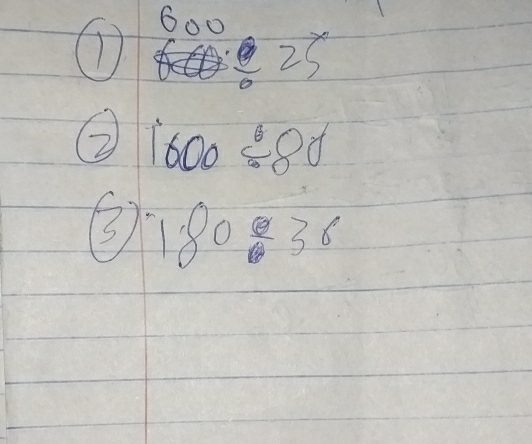 600
① ÷ 25
② 1600 ÷ 80
③ 180 ÷ 36